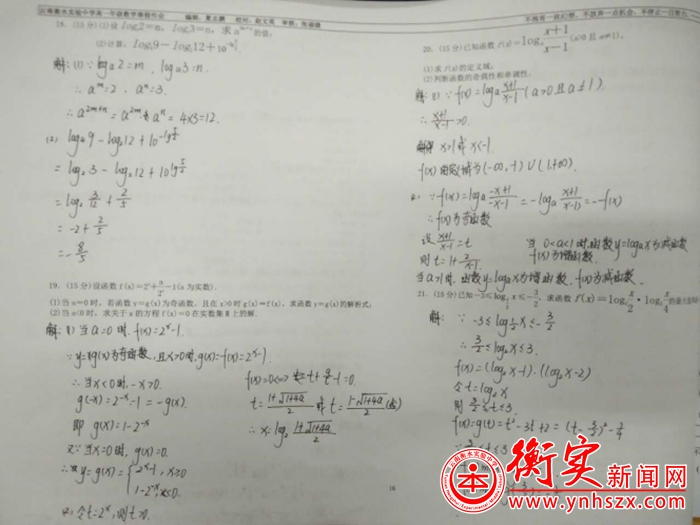 云南衡水实验中学高一年级数学寒假作业
18. (15分)(1)设 logₐ2=m, logₐ3=n, 求 a²ᵐ⁺ⁿ 的值;
(2)计算: log₄9－log₂12+10
解: (1) ∵ logₐ2=m, logₐ3=n.
∴ aᵐ=2, aⁿ=3.
∴ a²ᵐ⁺ⁿ = a²ᵐ·aⁿ = 4×3=12.
(2) log₄9－log₂12+10^(-lg 5/2)
= log₂3－log₂12+10^(lg 2/5)
= log₂ 3/12 + 2/5
= -2+ 2/5
= - 8/5
19. (15分)设函数 f(x)=2ˣ+ a/2ˣ －1(a为实数).
(1)当a=0时, 若函数y=g(x)为奇函数, 且在x>0时g(x)=f(x), 求函数y=g(x)的解析式;
(2)当a<0时, 求关于x的方程f(x)=0在实数集R上的解.
解: (1) 当a=0时, f(x)=2ˣ-1.
∵y=g(x)为奇函数, 且x>0时, g(x)=f(x)=2ˣ-1
∴当x<0时, -x>0.
g(-x)=2⁻ˣ-1=-g(x).
即 g(x)=1-2⁻ˣ
又∵当x=0时, g(x)=0.
∴y=g(x)={ 2ˣ-1, x≥0
1-2⁻ˣ, x<0.
令t=2ˣ, 则t>0.
f(x)=0⟺ t+ a/t -1=0.
t= (1+√(1-4a))/2 或 t= (1-√(1-4a))/2 (舍)
∴ x=log₂ (1+√(1-4a))/2
16
不抱有一丝幻想, 不放弃一点机会, 不停止一日努力.
20. (15分)已知函数 f(x)=logₐ (x+1)/(x-1) (a>0且a≠1),
(1)求f(x)的定义域;
(2)判断函数的奇偶性和单调性.
解: (1) ∵ f(x)=logₐ (x+1)/(x-1) (a>0且a≠1)
∴ (x+1)/(x-1) >0.
解得 x>1或x<-1
f(x)的定义域为(-∞,-1)∪(1,+∞)
∵ f(-x)=logₐ (-x+1)/(-x-1) = -logₐ (x+1)/(x-1) = -f(x)
∴ f(x)为奇函数
设 (x+1)/(x-1) =t
则 t=1+ 2/(x-1)
当 0<a<1时, 函数y=logₐx为减函数
f(x)为增函数
当a>1时, 函数y=logₐx为增函数, f(x)为减函数.
21. (15分)已知-3≤log½x≤- 3/2, 求函数 f(x)=log₂ x/2 · log₂ x/4 的
解: ∵ -3≤log½x≤- 3/2
∴ 3/2≤log₂x≤3.
f(x)=(log₂x-1)·(log₂x-2)
令t=log₂x
则 3/2≤t≤3.
f(x)=g(t)=t²-3t+2=(t- 3/2)²- 1/4
≤t≤3
云南衡水实验中学
衡实新闻网
www.ynhszx.com